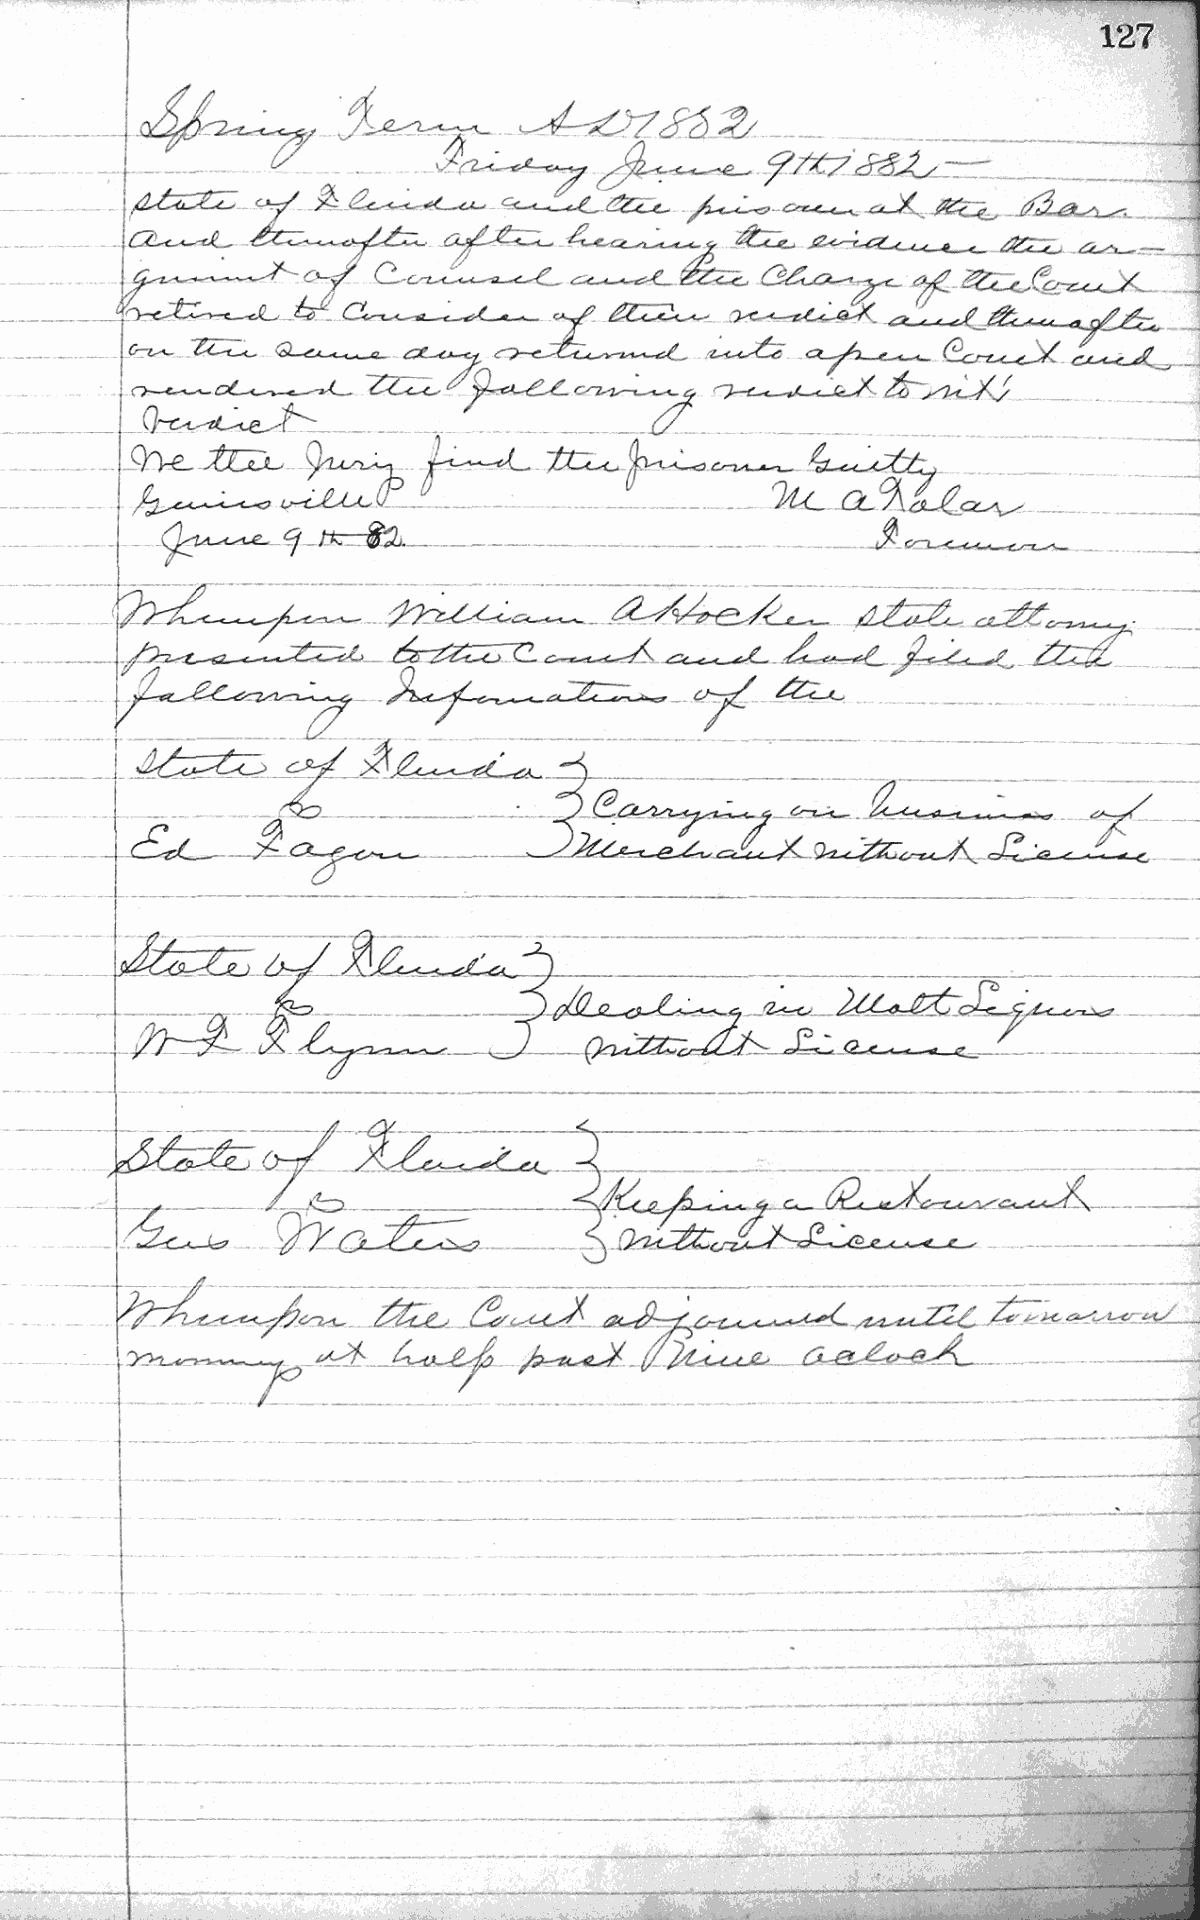 127
Spring Term A D 1882
Friday June 9th 1882 —
State of Florida and the prisoner at the Bar.
And thereafter after hearing the evidence the ar-
gument of Counsel and the Charge of the Court
retired to Consider of their verdict and thereafter
on the same day returned into open Court and
rendered the following verdict to wit,
Verdict
We the Jury find the prisoner Guilty
Gainesville
M A Tolar
June 9th 82.
Foreman
Whereupon William A Hocker State attorney
presented to the Court and had filed the
following Informations of the
State of Florida
vs
Carrying on business of
Ed Fagan
Merchant without License
State of Florida
vs
Dealing in Malt Liquors
W F Flynn
without License
State of Florida
vs
Keeping a Restaurant
Gus Waters
without License
Whereupon the Court adjourned until tomorrow
morning at half past Nine oclock